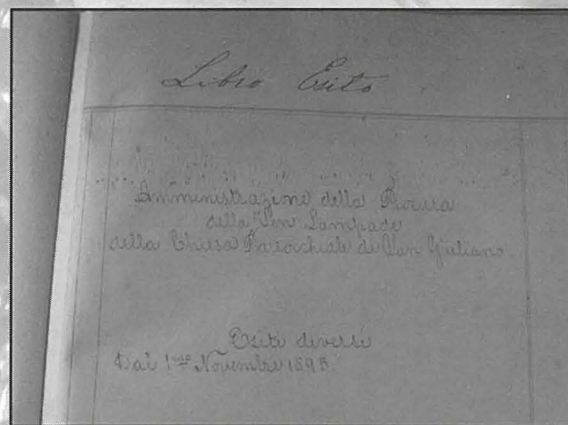 Libro Esito
Amministrazione della Procura
della Ven Lampade
della Chiesa Parrochiale di San Giuliano
Esiti diversi
Dal 1mo Novembre 1895